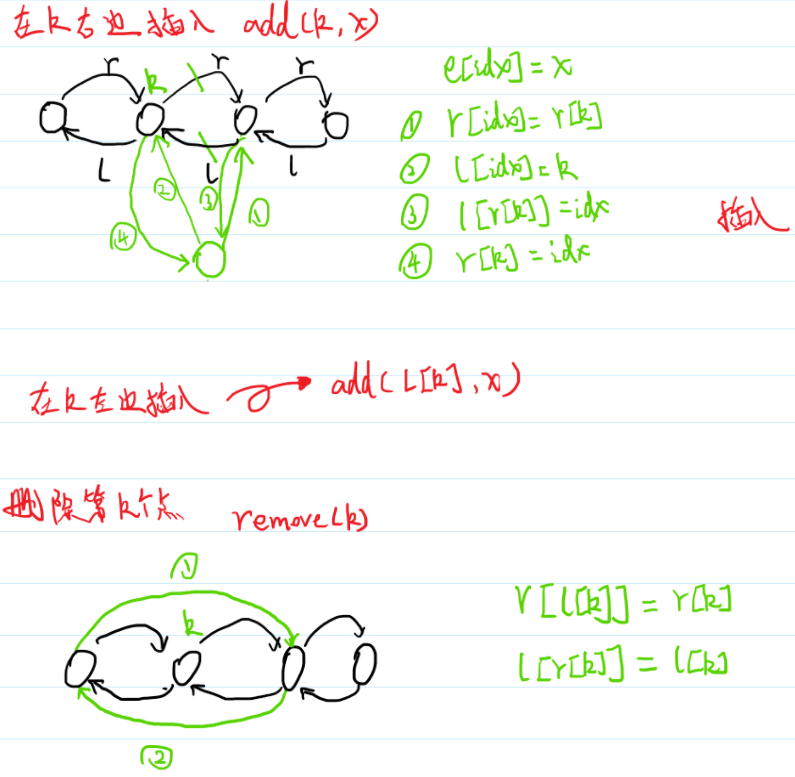 在k右边插入 add(k,x)
r r r
k
l l l
② ③ ①
④
e[idx]=x
① r[idx]=r[k]
② l[idx]=k
③ l[r[k]]=idx
④ r[k]=idx
插入
在k左边插入 add(l[k],x)
删除第k个点 remove(k)
①
k
②
r[l[k]]=r[k]
l[r[k]]=l[k]